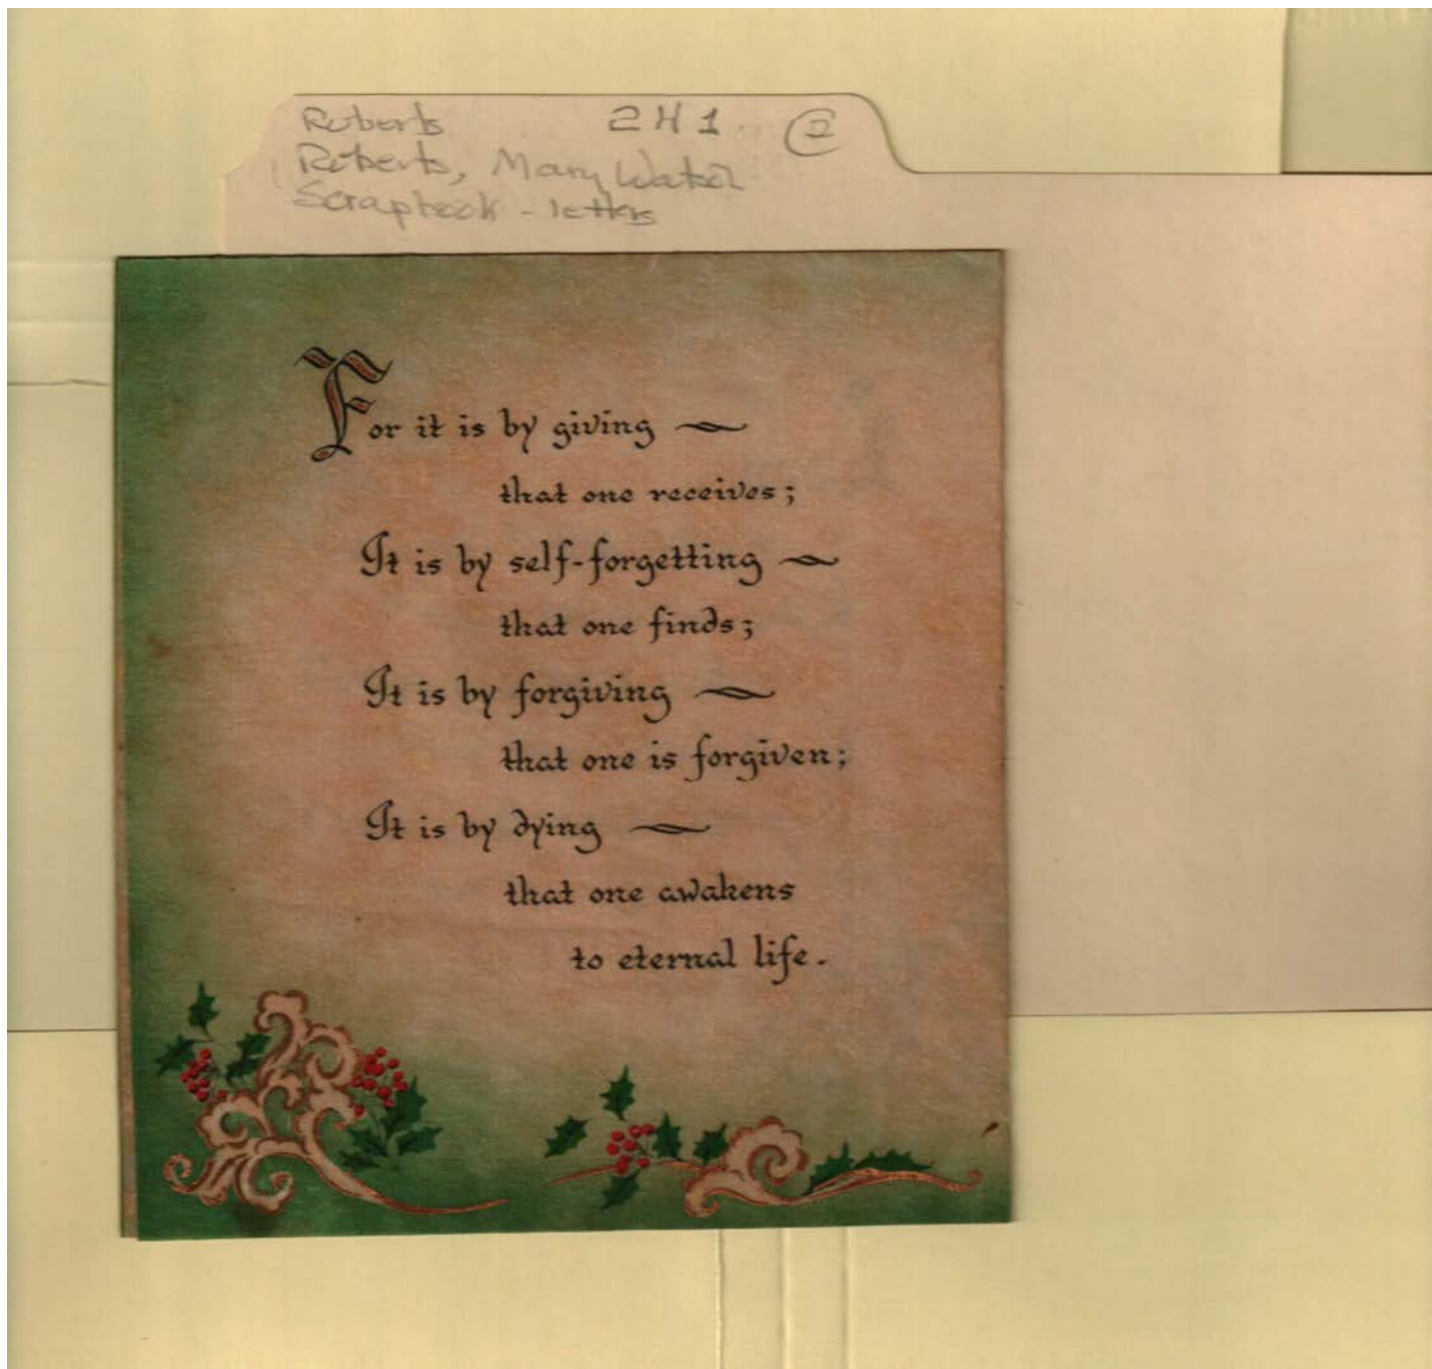 Roberts 2H1 2
Roberts, Mary Watson
Scrapbook - letters
For it is by giving
that one receives;
It is by self-forgetting
that one finds;
It is by forgiving
that one is forgiven;
It is by dying
that one awakens
to eternal life.